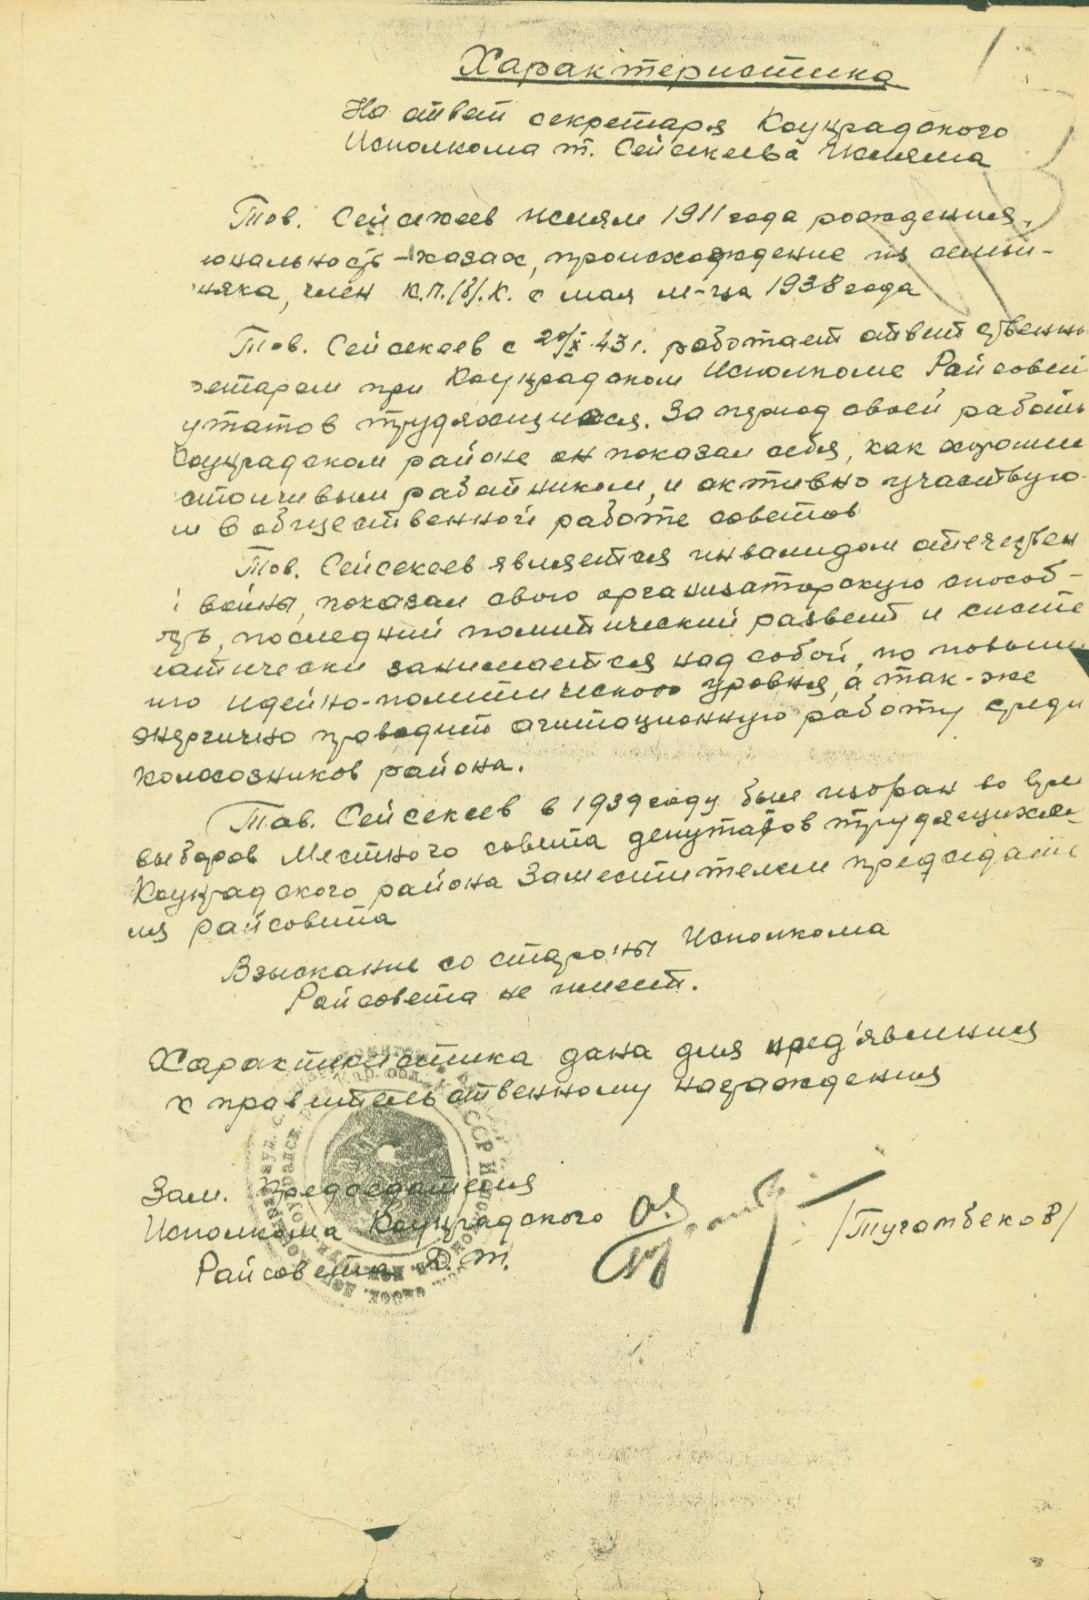 Характеристика
На ответ секретаря Коунрадского
Исполкома т. Сейсекеева
Тов. Сейсекеев 1911 года рождения,
иональность – казах, происхождение из семьи-
няка, член К.П./б/.К. с мая м-ца 1938 года
Тов. Сейсекеев с 20/X-43г. работает ответственн
ретарем при Коунрадском Исполкоме Райсовет
утатов трудящихся. За период своей работы
Коунрадском районе он показал себя, как хороший
стойчивым работником, и активно участвую
и в общественной работе советов
Тов. Сейсекеев является инвалидом отечествен
й войны, показал свою организаторскую способ-
ть, последний политический развит и систе
матически занимается над собой, по повыше
ию идейно-политического уровня, а так-же
энергично проводит агитационную работу среди
колхозников района.
Тов. Сейсекеев в 1939 году был избран во врем
выборов Местного совета депутатов трудящихся
Коунрадского района Заместителем председате
ля райсовета
Взыскание со стороны Исполкома
Райсовета не имеет.
Характеристика дана для пред'явления
к правительственному награждения
Зам. Председателя
Исполкома Коунрадского
Райсовета Д.Т.
/Тугамбеков/